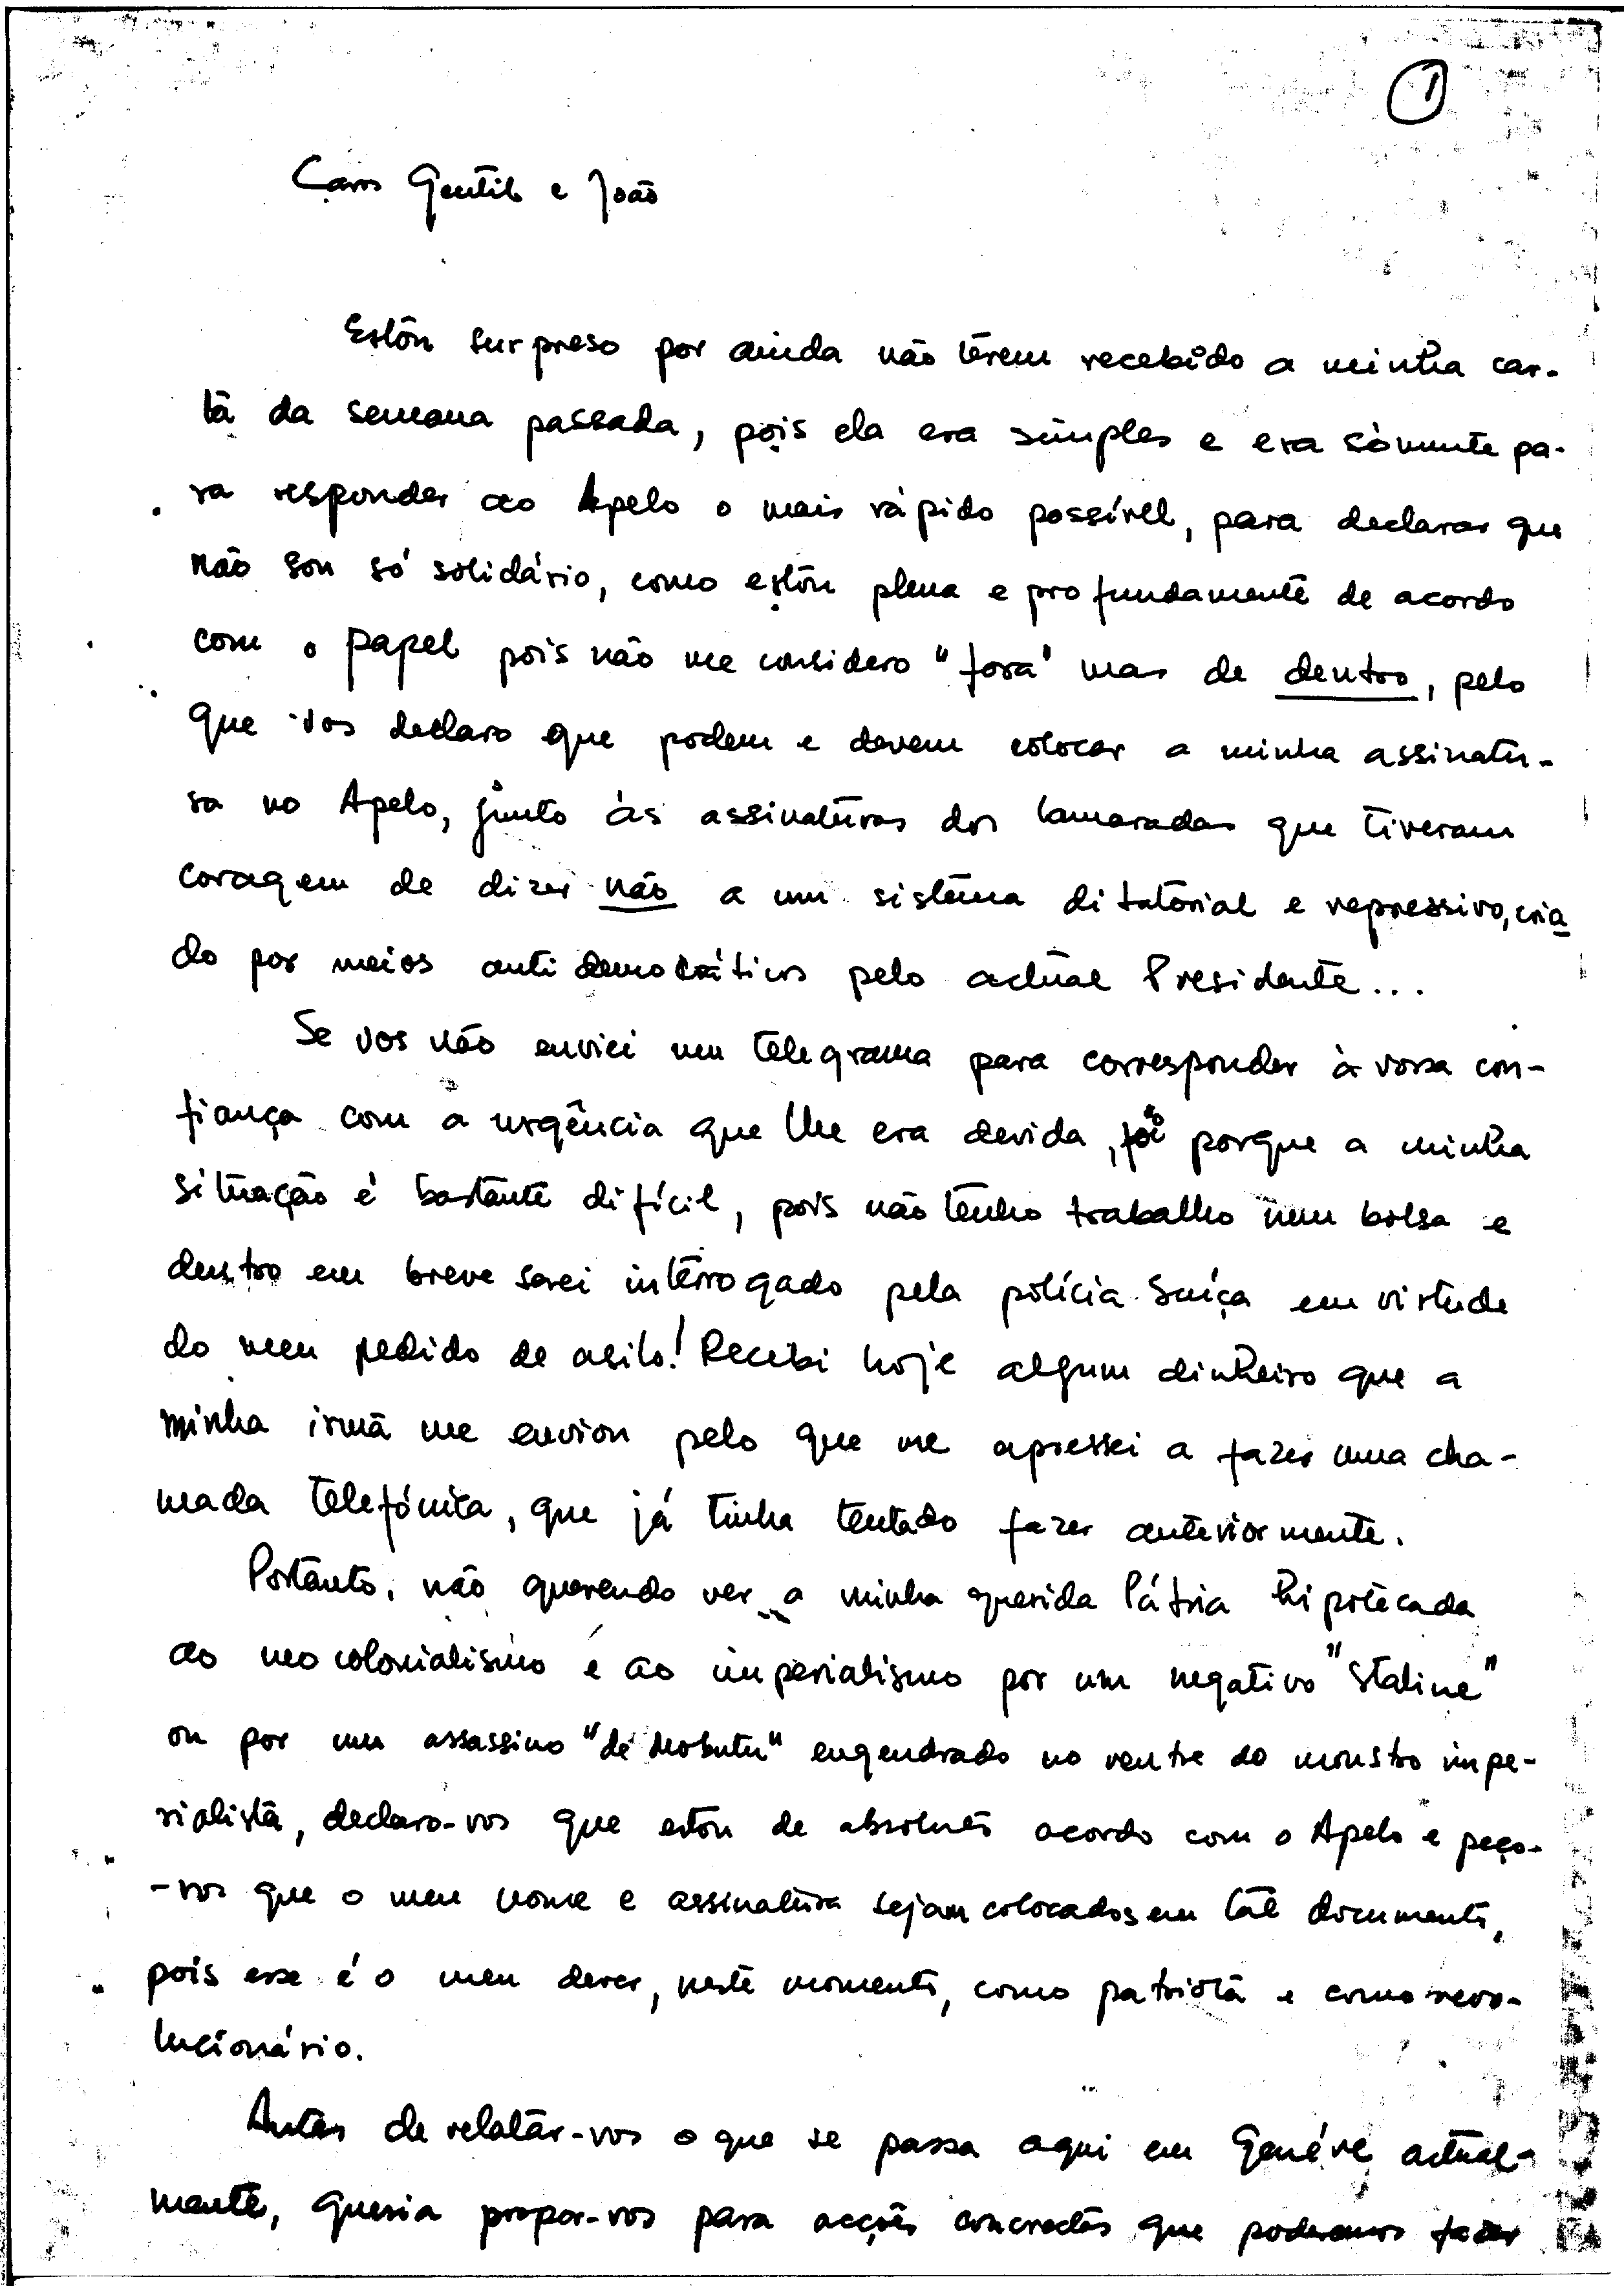 1
Caros Gentil e João
Estou surpreso por ainda não terem recebido a minha car-
ta da semana passada, pois ela era simples e era sòmente pa-
ra responder ao Apelo o mais rápido possível, para declarar que
não sou só solidário, como estou plena e profundamente de acordo
com o papel pois não me considero "fora" mas de dentro, pelo
que vos declaro que podem e devem colocar a minha assinatu-
ra no Apelo, junto às assinaturas dos Camaradas que tiveram
coragem de dizer não a um sistema ditatorial e repressivo, cria
do por meios antidemocráticos pelo actual Presidente...
Se vos não enviei um telegrama para corresponder à vossa con-
fiança com a urgência que lhe era devida, foi porque a minha
situação é bastante difícil, pois não tenho trabalho nem bolsa e
dentro em breve serei interrogado pela polícia Suíça em virtude
do meu pedido de asilo! Recebi hoje algum dinheiro que a
minha irmã me enviou pelo que me apressei a fazer uma cha-
mada telefónica, que já tinha tentado fazer anteriormente.
Portanto, não querendo ver a minha querida Pátria hipotecada
ao neocolonialismo e ao imperialismo por um negativo "Staline"
ou por um assassino "de Mobutu" engendrado no ventre do monstro impe-
rialista, declaro-vos que estou de absoluto acordo com o Apelo e peço-
-vos que o meu nome e assinatura sejam colocados em tal documento,
pois esse é o meu dever, neste momento, como patriota e como revo-
lucionário.
Antes de relatar-vos o que se passa aqui em Genéve actual-
mente, queria propor-vos para acções concretas que poderemos fazer